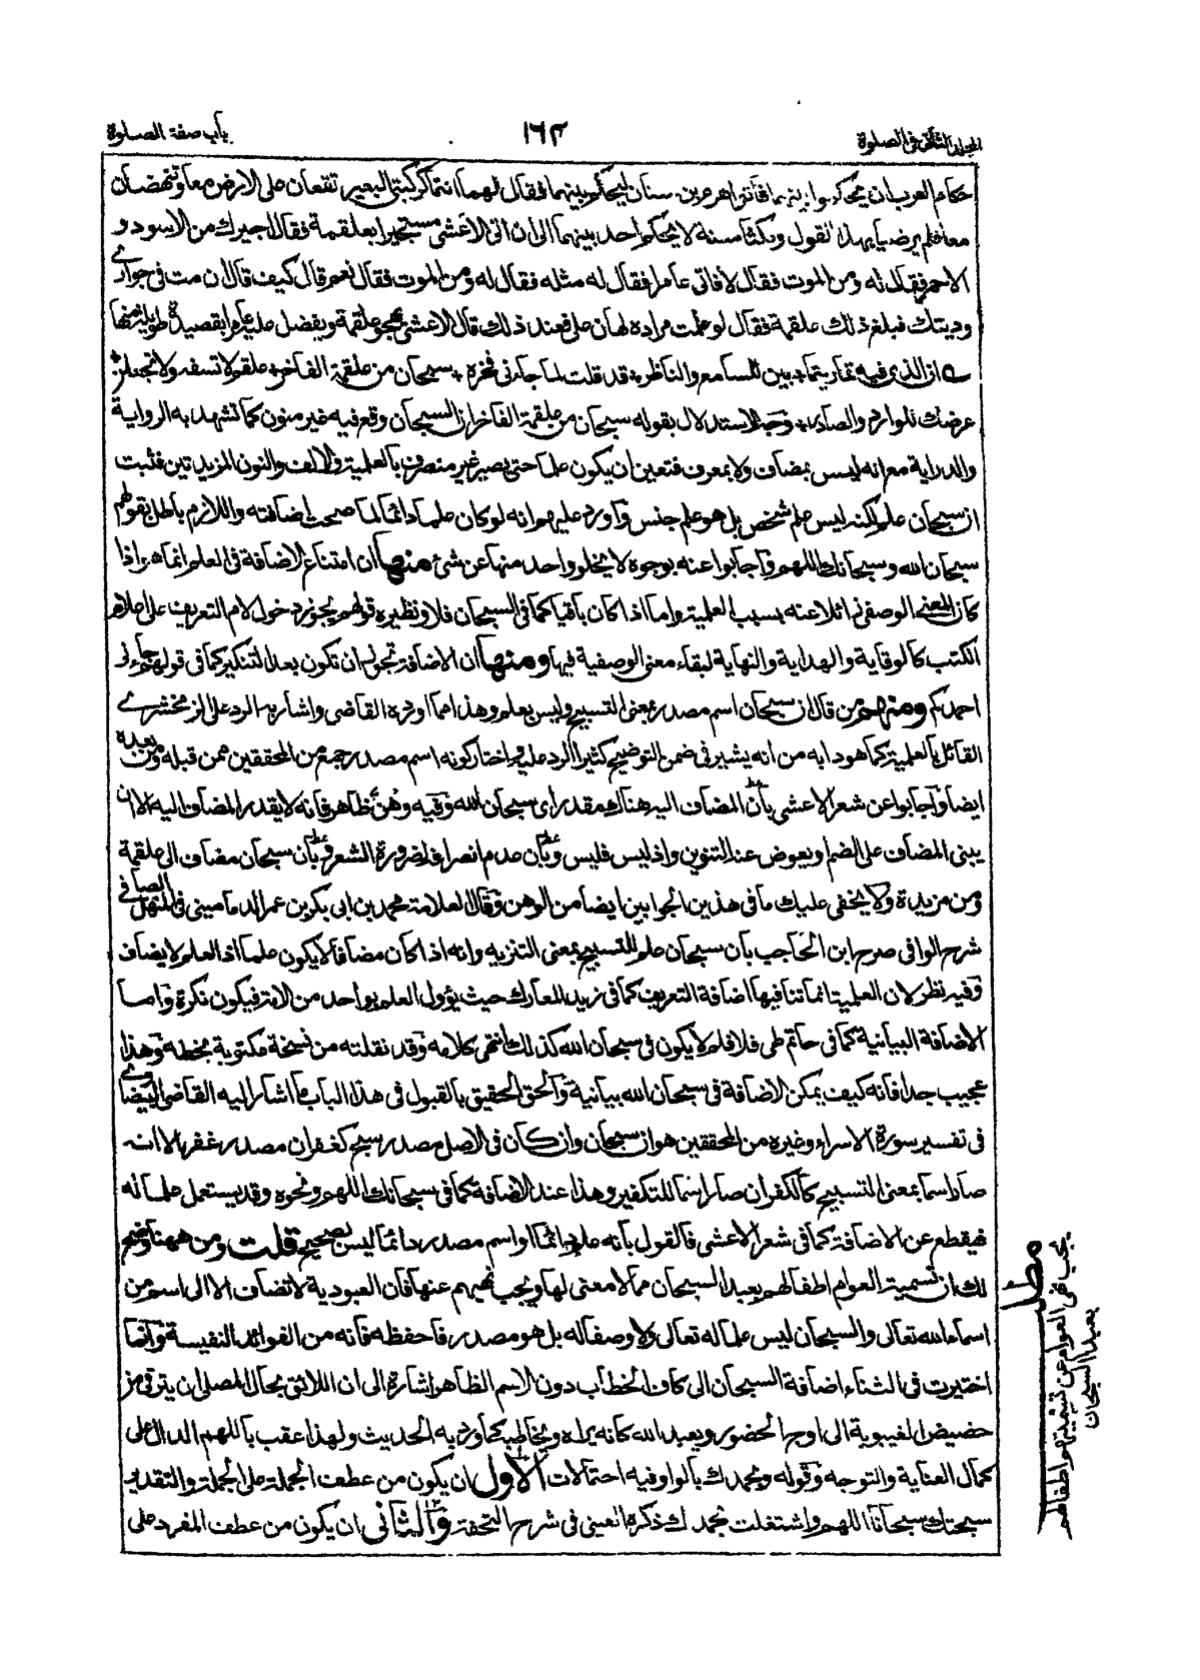 المجلد الثاني في الصلوة
١٦٣
باب صفة الصلوة
حكام العرب ان يحكموا بينهما فأتوا هرم بن سنان ليحكم بينهما فقال لهما انتما كركبتي البعير تقعان على الارض معا وتنهضان
معا فلم يرضيا بهذا القول ومكثا سنة لا يحكم احد بينهما الى ان اتى الاعشى مستجيرا بعلقمة فقال اجيرك من الاسود و
الاحمر فقال له ومن الموت فقال لا فاتى عامرا فقال له مثله فقال له ومن الموت فقال نعم قال كيف قال ان مت في جواري
وديتك فبلغ ذلك علقمة فقال لو علمت مراده لهان علي فعند ذلك قال الاعشى يهجو علقمة ويفضل عليه عامرا بقصيدة طويلة منها
ان الذي فيه تماريتما بين للسامع والناظر قد قلت لما جاءني فخره سبحان من علقمة الفاخر علقم لا تسفه ولا تجعلن
عرضك للوارد والصادر وجه الاستدلال بقوله سبحان من علقمة الفاخر ان السبحان وقع فيه غير منون كما تشهد به الرواية
والدراية مع انه ليس بمضاف ولا بمعرف فتعين ان يكون علما حتى يصير غير منصرف بالعلمية والالف والنون المزيدتين فثبت
ان سبحان علم لكنه ليس علم شخص بل هو علم جنس وأورد عليه انه لو كان علما دائما لما صحت اضافته واللازم باطل بقولهم
سبحان الله وسبحانك اللهم وأجابوا عنه بوجوه لا يخلو واحد منها عن شئ منها ان امتناع الاضافة في العلم انما هو اذا
كان المعنى الوصفي زائلا عنه بسبب العلمية واما اذا كان باقيا كما في السبحان فلا ونظيره قولهم يجوز دخول لام التعريف على اعلام
الكتب كالوقاية والهداية والنهاية لبقاء معنى الوصفية فيها ومنها ان الاضافة تجوز ان تكون بعد التنكير كما في قولهم جاءني
احمدكم ومنهم من قال ان سبحان اسم مصدر بمعنى التسبيح وليس بعلم وهذا مما اورده القاضي واشار به الرد على الزمخشري
القائل بالعلمية كما هو دابه من انه يشير في ضمن التوضيح كثيرا الرد عليه واختار كونه اسم مصدر جمع من المحققين ممن قبله ومن بعده
ايضا وأجابوا عن شعر الاعشى بأن المضاف اليه هناك مقدر اي سبحان الله وفيه وهن ظاهر فانه لا يقدر المضاف اليه الا ان
يبنى المضاف على الضم او يعوض عنه التنوين واذ ليس فليس وبأن عدم انصرافه لضرورة الشعر وبأن سبحان مضاف الى علقمة
ومن مزيدة ولا يخفى عليك ما في هذين الجوابين ايضا من الوهن وقال العلامة محمد بن ابي بكر بن عمر الدماميني في المنهل الصافي
شرح الوافي صرح ابن الحاجب بأن سبحان علم للتسبيح بمعنى التنزيه وانه اذا كان مضافا لا يكون علما اذ العلم لا يضاف
وفيه نظر لان العلمية انما تنافيها اضافة التعريف كما في زيد المعارك حيث يؤول العلم بواحد من الامة فيكون نكرة وأما
الاضافة البيانية كما في حاتم طي فلا فلم لا يكون في سبحان الله كذلك انتهى كلامه وقد نقلته من نسخة مكتوبة بخطه وهذا
عجيب جدا فانه كيف يمكن الاضافة في سبحان الله بيانية والحق الحقيق بالقبول في هذا الباب ما اشار اليه القاضي البيضاوي
في تفسير سورة الاسراء وغيره من المحققين هو ان سبحان وان كان في الاصل مصدر سبح كغفران مصدر غفر الا انه
صار اسما بمعنى التسبيح كالكفران صار اسما للتكفير وهذا عند الاضافة كما في سبحانك اللهم ونحوه وقد يستعمل علما له
فيقطع عن الاضافة كما في شعر الاعشى فالقول بأنه علم دائما او اسم مصدر دائما ليس بصحيح قلت ومن ههنا وضح
لك ان تسمية العوام اطفالهم بعبد السبحان مما لا معنى لها ويجب نهيهم عنها فان العبودية لا تضاف الا الى اسم من
اسماء الله تعالى والسبحان ليس علما له تعالى ولا وصفا له بل هو مصدر فاحفظه فانه من الفوائد النفيسة وانما
اختيرت في الثناء اضافة السبحان الى كاف الخطاب دون الاسم الظاهر اشارة الى ان اللائق بحال المصلي ان يترقى من
حضيض الغيبوبة الى اوج الحضور ويعبد الله كانه يراه ويخاطبه كما ورد به الحديث ولهذا عقب باللهم الدال على
كمال العناية والتوجه وقوله وبحمدك بالواو فيه احتمالات الاول ان يكون من عطف الجملة على الجملة والتقدير
سبحتك سبحانا اللهم واشتغلت بحمدك ذكره العيني في شرح التحفة والثاني ان يكون من عطف المفرد على
مطلب
يجب نهي العوام عن تسميتهم اطفالهم
بعبد السبحان